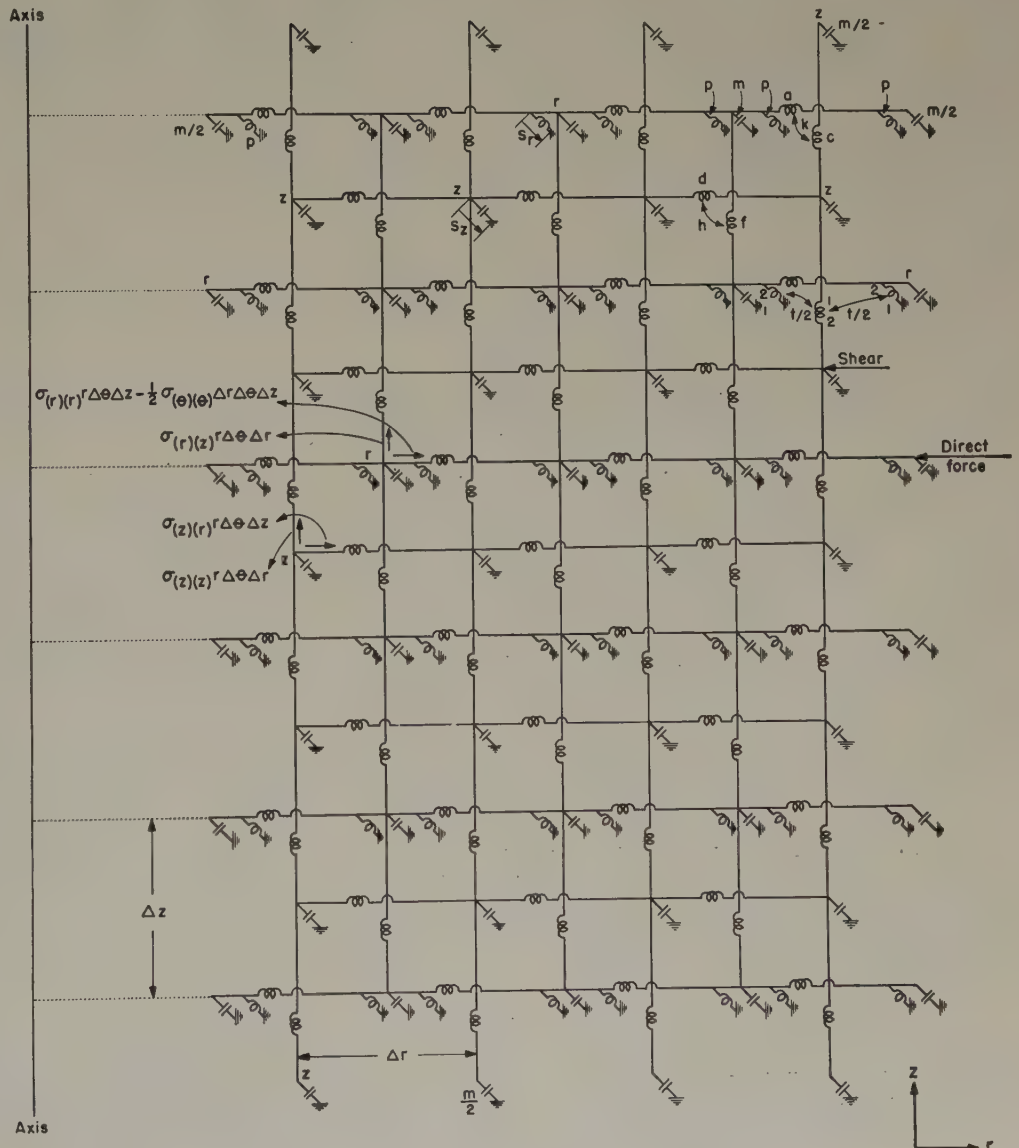 Axis
z
m/2
p
m
p
a
p
r
m/2
p
Sr
k
c
m/2
z
z
Sz
d
h
f
z
r
2
1
t/2
1
2
t/2
2
1
r
Shear
σ(r)(r) r Δθ Δz - ½ σ(θ)(θ) Δr Δθ Δz
σ(r)(z) r Δθ Δr
r
Direct
force
σ(z)(r) r Δθ Δz
z
σ(z)(z) r Δθ Δr
Δz
Δr
z
m/2
z
r
Axis